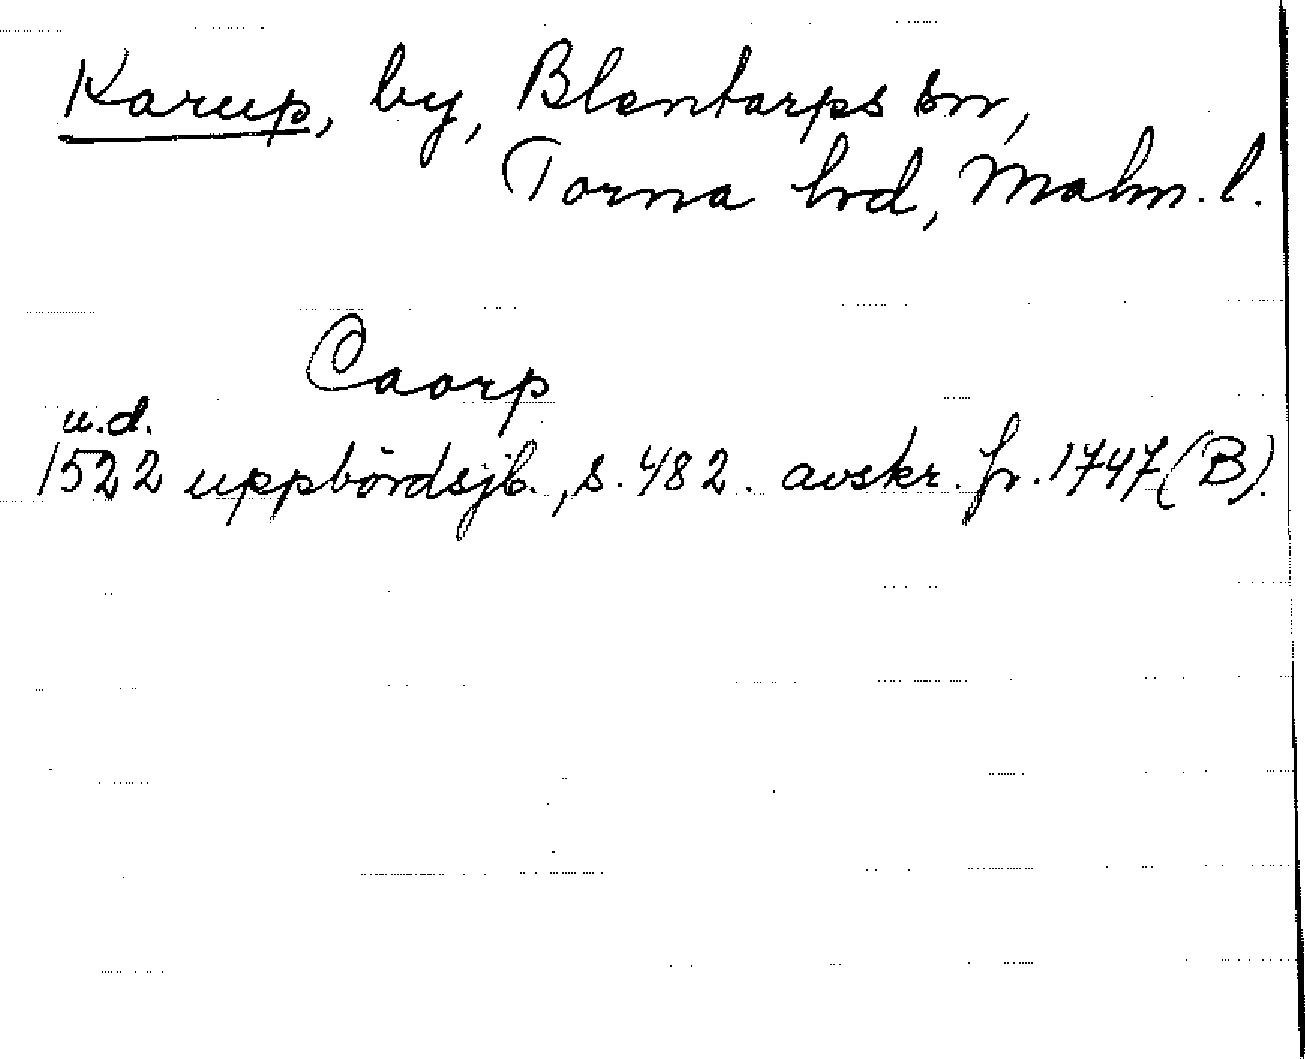 Karup, by, Blentarps sn,
Torna hrd, Malm. l.
Caorp
u.d.
1522 uppbördsjb., s. 482. avskr. fr. 1747 (B).